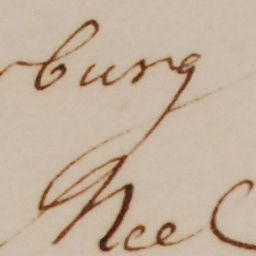 rburg
Nee